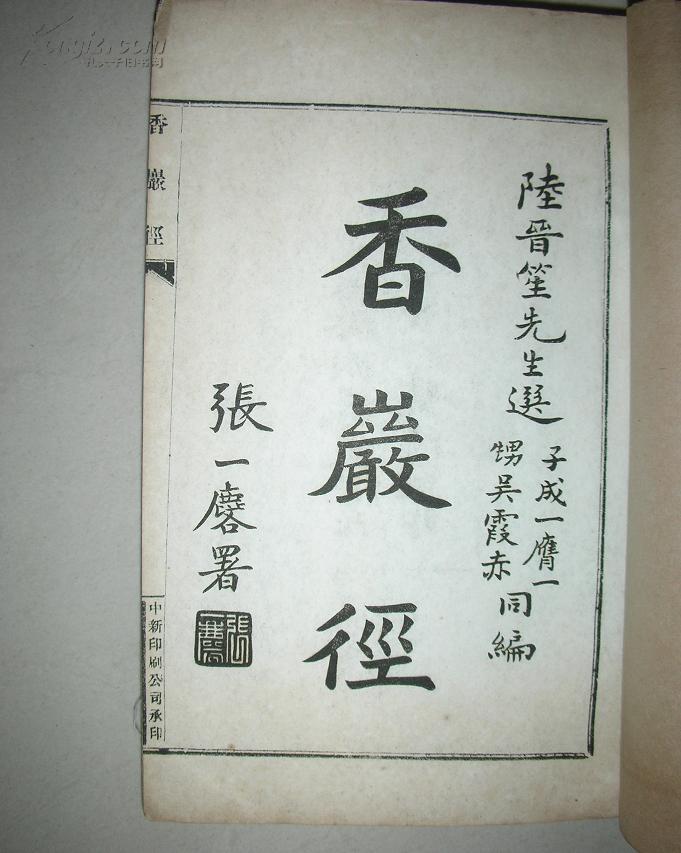 陸晉笙先生選
子成一膺一
甥吳霞赤
同編
香巖徑
張一麐署
張一麐
香巖徑
中新印刷公司承印
Kongfz.com
孔夫子旧书网